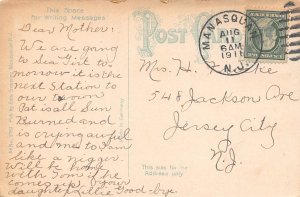 This Space
for Writing Messages
Dear Mother:
We are going
to Sea Girt To
morrow it is the
next Station to
our town
Pat is all Sun
Burned and
is crying awful
and me to I am
like a nigger.
Will be home
with Tom. The
comes up. your
daughter Lillie Good-bye.
POST
MANASQUAN
AUG
11
6AM
1911
N.J.
Mrs. H.
548 Jackson Ave
Jersey City
N.J.
This side for the
Address only